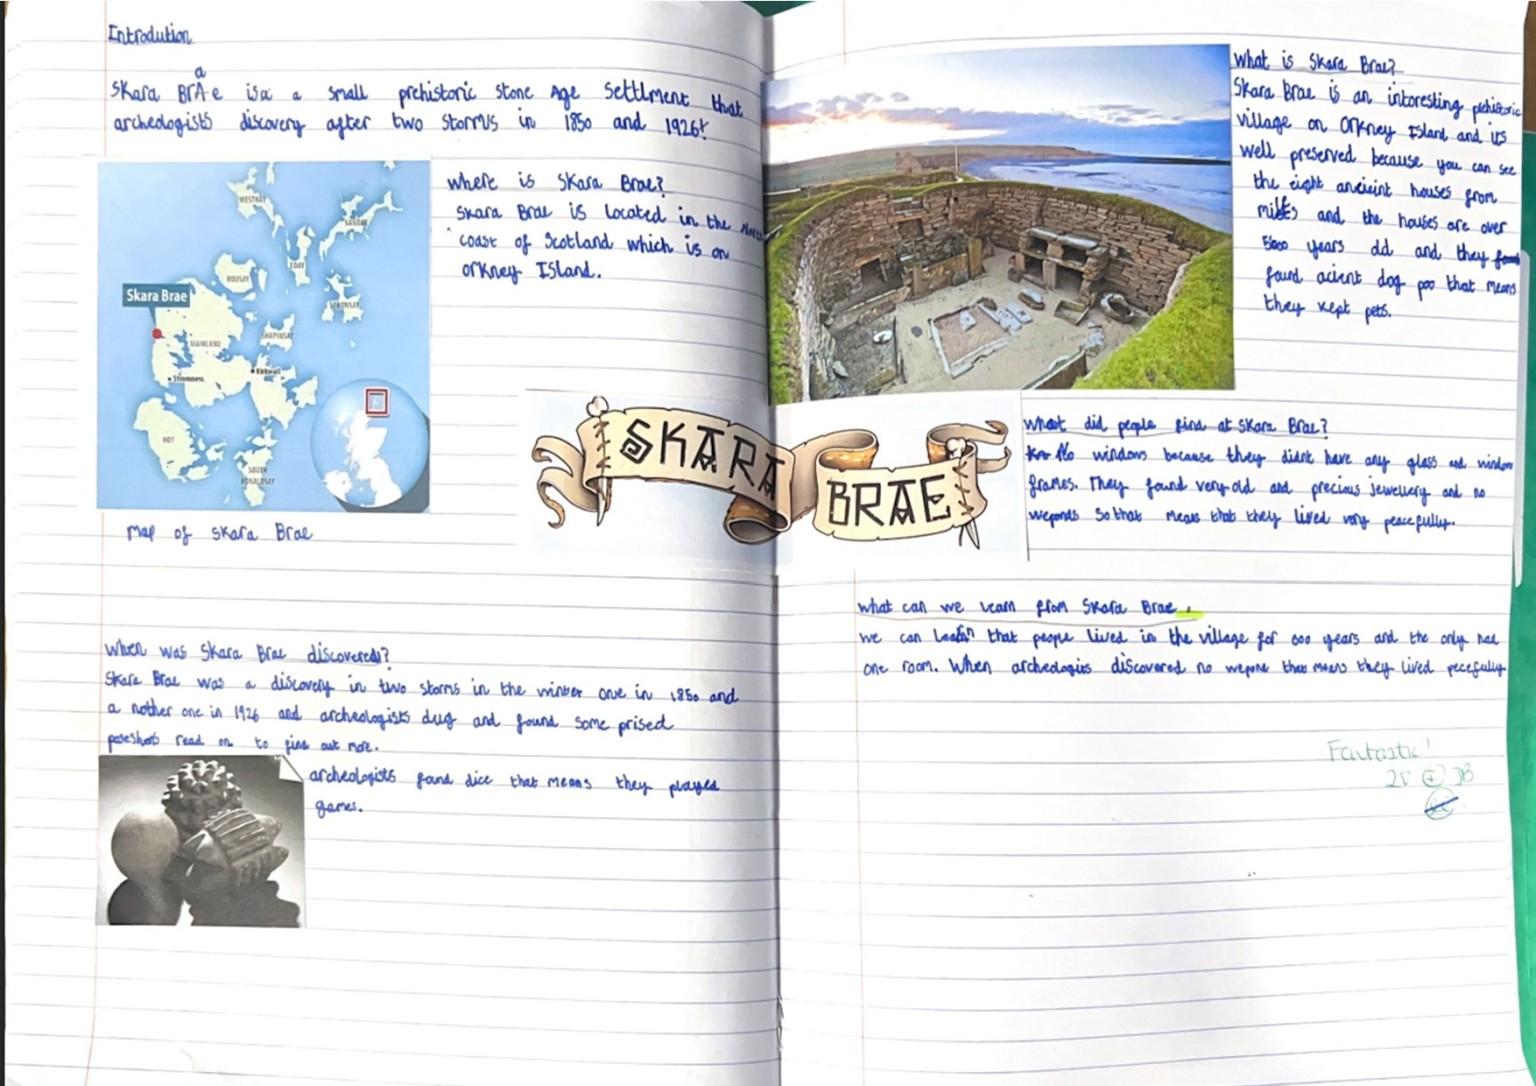 Introdution
a
Skara BrAe is a small prehistoric stone Age settlment that
archeologists discovery after two storms in 1850 and 1926!
WESTRAY
SANDAY
ROUSAY
EDAY
STRONSAY
Skara Brae
SHAPINSAY
MAINLAND
Stromness
Kirkwall
HOY
SOUTH
RONALDSAY
Map of Skara Brae
Where is Skara Brae?
Skara Brae is located in the North
coast of Scotland which is on
Orkney Island.
SKARA
BRAE
When was Skara Brae discovered?
Skara Brae was a discovery in two storms in the winter one in 1850 and
a nother one in 1926 and archeologists dug and found some prised
read on to find out more.
archeologists found dice that means they played
games.
What is Skara Brae?
Skara Brae is an intoresting pehistoric
village on Orkney Island and its
well preserved because you can see
the eight ancieint houses from
miles and the houses are over
5000 years old and they
found acient dog poo that means
they kept pets.
What did people find at Skara Brae?
No windows because they didnt have any glass and window
frames. They found very old and precious jewellery and no
weponds so that means that they lived very peacefully.
what can we learn from Skara Brae.
we can learn that people lived in the village for 000 years and the only had
one room. When archeologies discovered no wepons that means they lived pecefully
Fantastic!